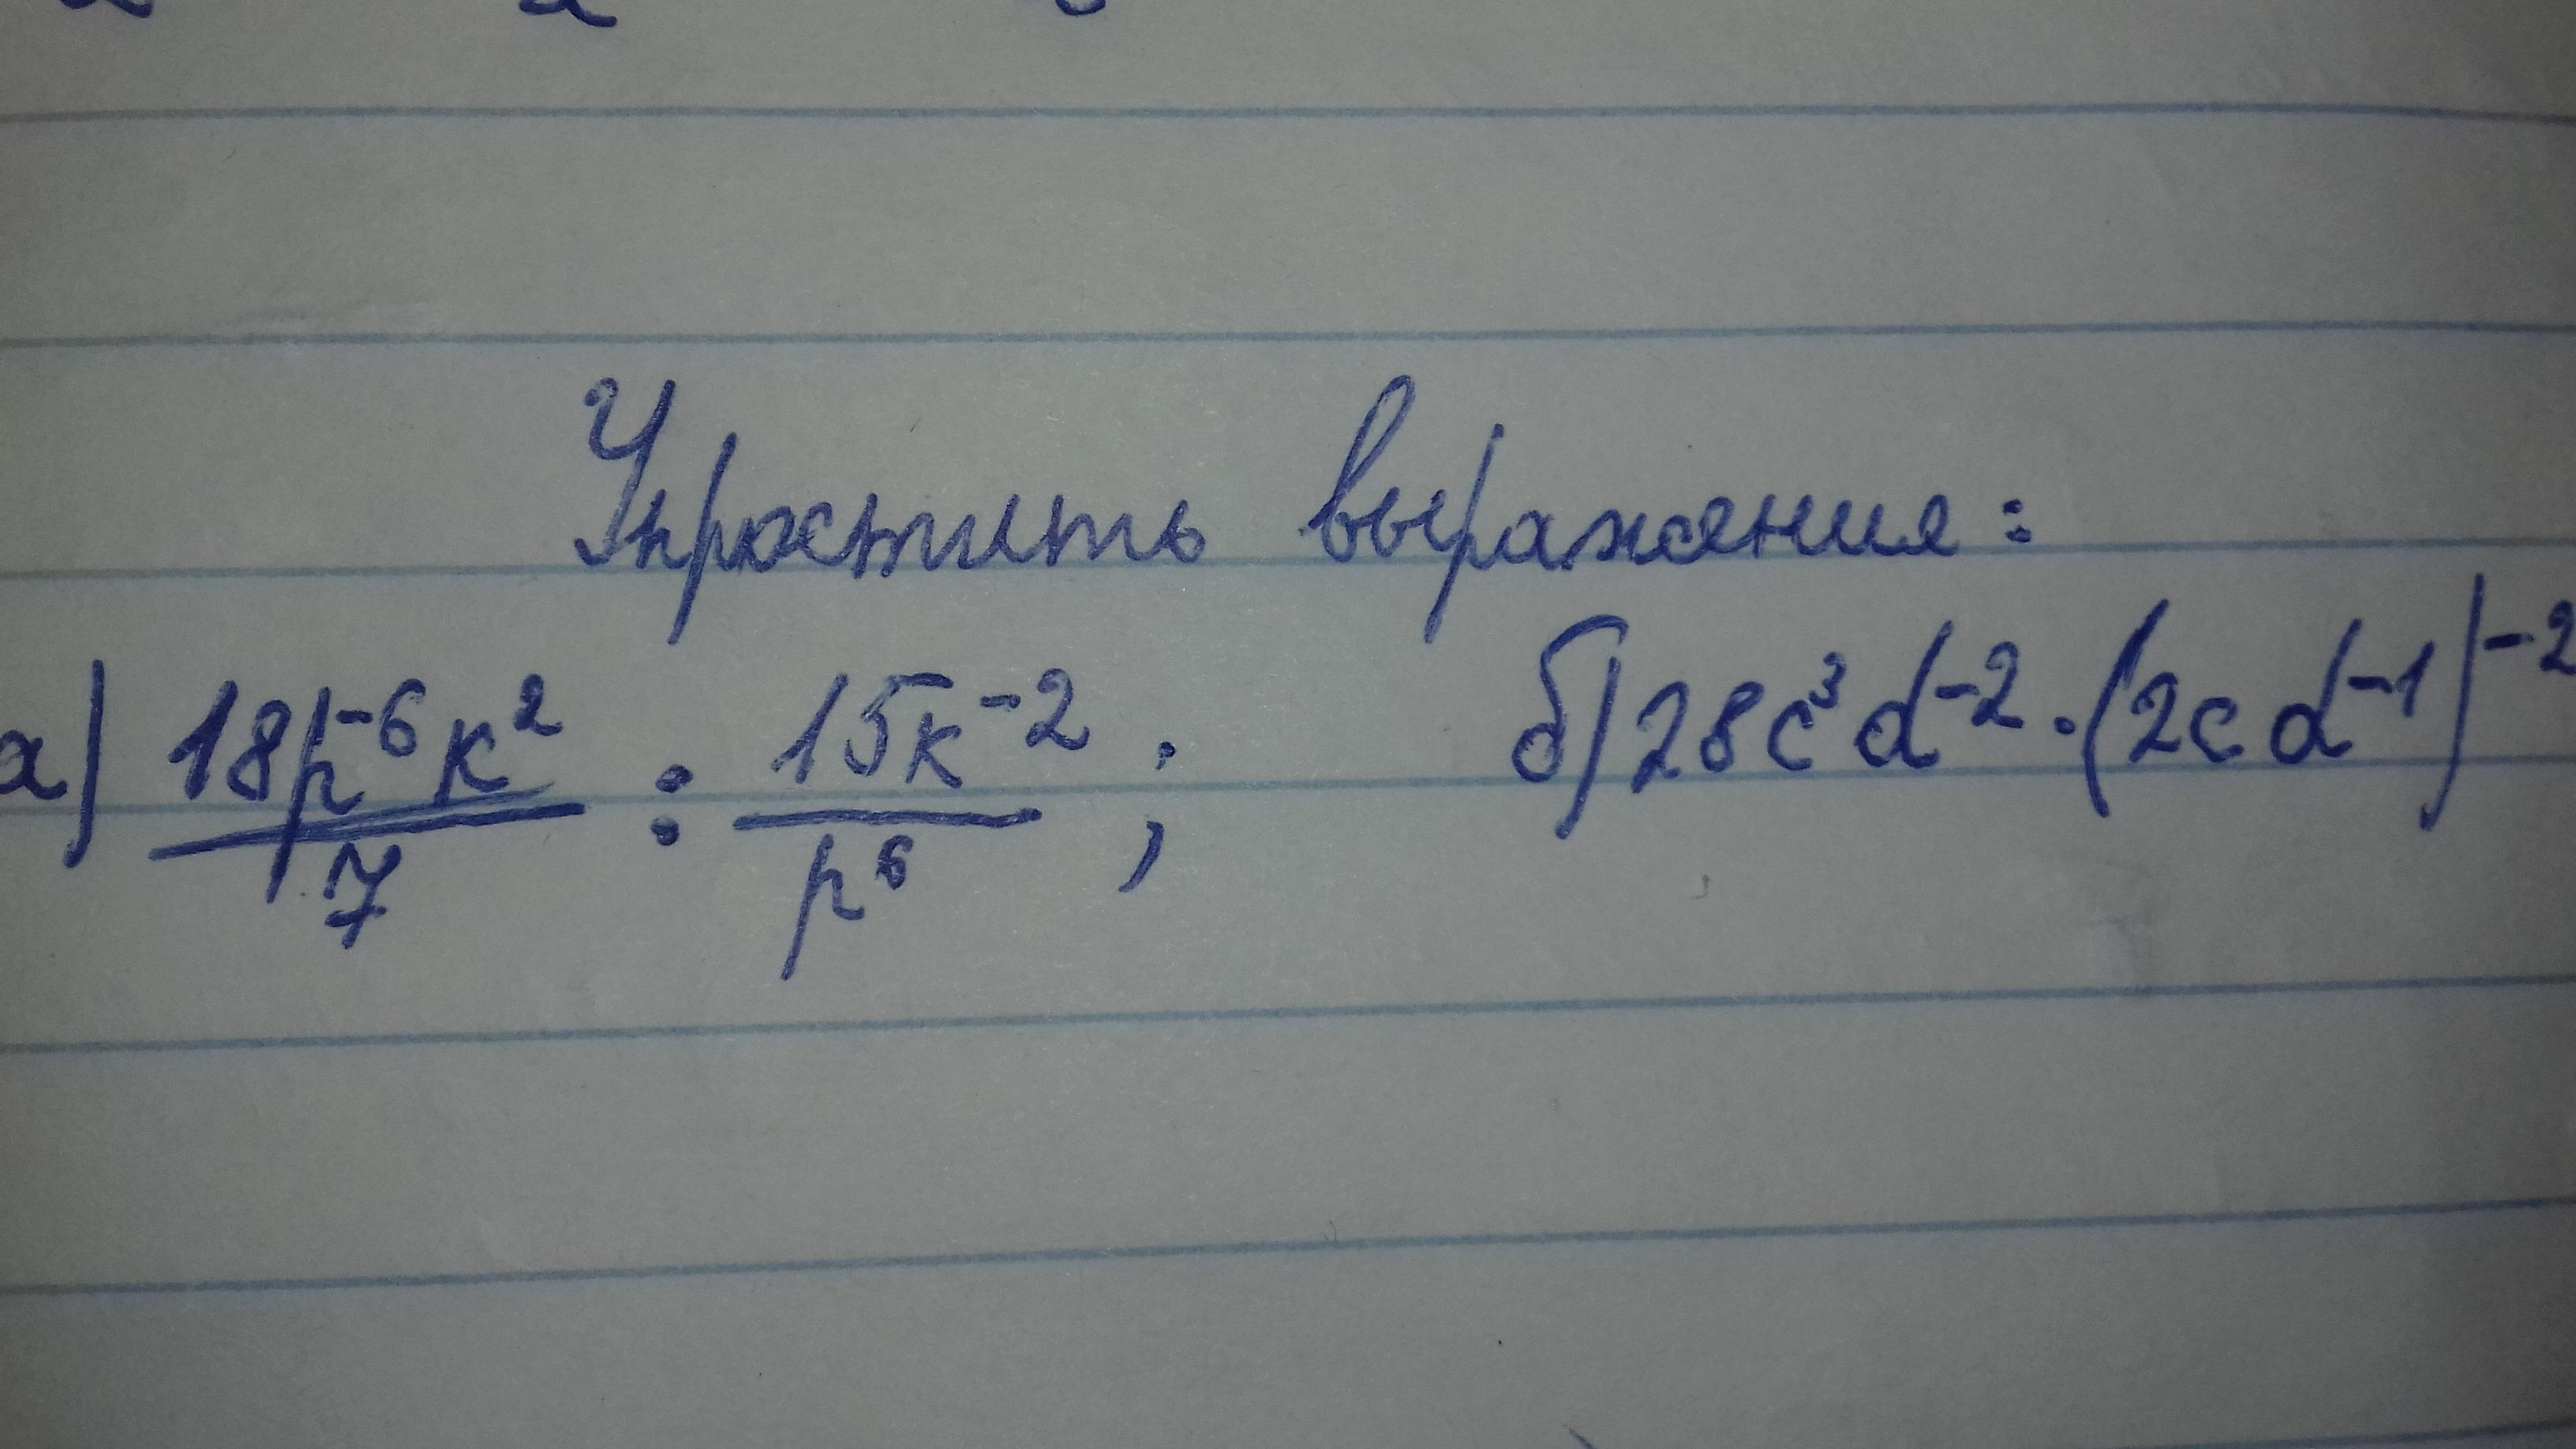 Упростить выражения:
а) 18p⁻⁶k² / 7 : 15k⁻² / p⁶ ; б) 28c³d⁻² · (2cd⁻¹)⁻²